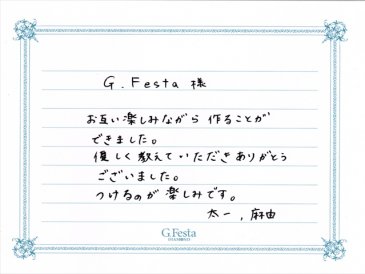 G.Festa 様
お互い楽しみながら 作ることが
できました。
優しく教えていただきありがとう
ございました。
つけるのが 楽しみです。
太一, 麻由
G.Festa
DIAMOND